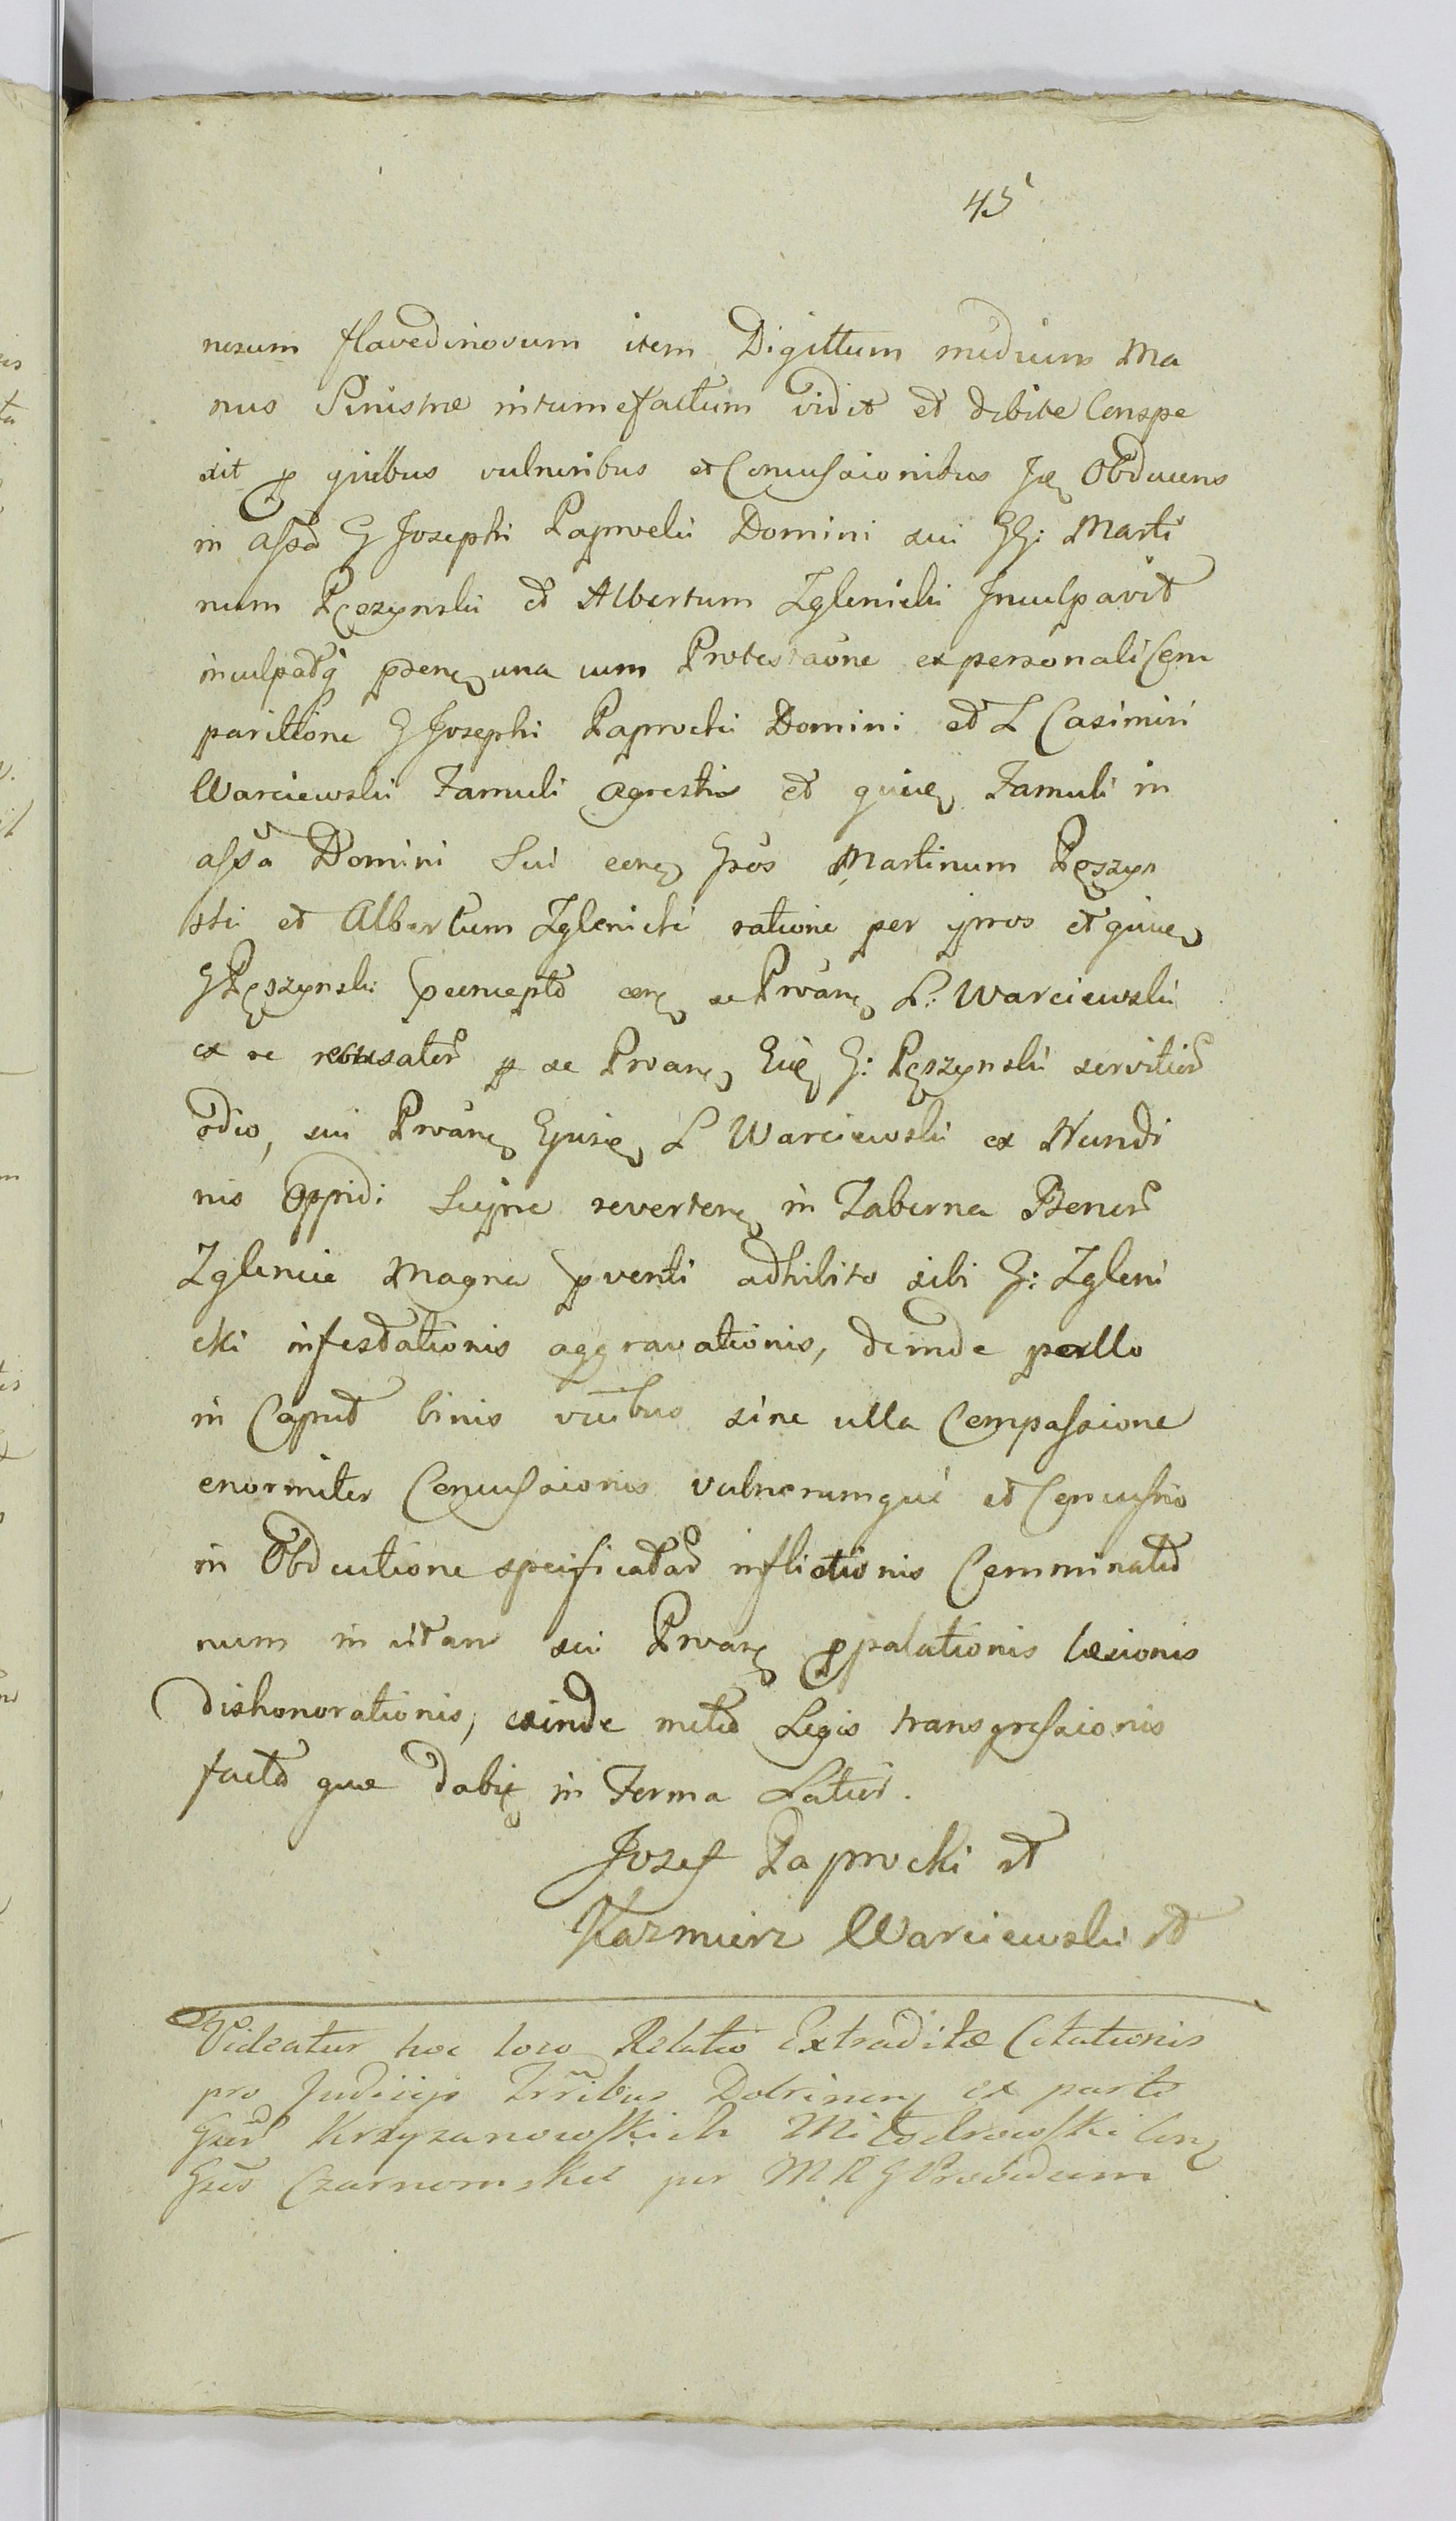 45
nosum flavedinosum item Digittum medium Ma
nus Sinistræ intumefactum vidit et debite Conspe
xit p quibus vulneribus et Concussionibus Ide Obducens
in assa G Josephi Paprocki Domini sui GG: Marti
num Pęszynski et Albertum Zglenicki Inculpavit
inculpatq una cum Protestaõne ex personali Com
paritione G Josephi Paprocki Domini et L Casimiri
Warciewski Famuli agrestis et Famuli in
assa Domini Sui Gros Martinum Pęszyn
ski et Albertum Zglenicki ratione per ipsos et
G Pęszynski L: Warciewski
ex se p se G: Pęszynski
odio, sui L Warciewski ex Nundi
nis Oppidi Sujne reverten in Taberna Bonor
Zglenice Magna pventi adhibito sibi G: Zgleni
cki infestationis aggravationis, deinde
in Caput binis vicibus sine ulla Compassione
enormiter Concussionis vulnerumque et Concussio
in Obductione specificatar inflictionis Comminatio
num in vitam sui ppalationis læsionis
dishonorationis, exinde Legis transgressionis
facta quæ in Forma Latius.
Jozef Paprocki
Kazmierz Warciewski
Videatur hoc loco Relatio Extraditæ Citationis
pro Judicijs Trribus Dobrinen ex parte
Grr Krzyzanowskich Miłodrowski Con
Gros Czarnomskie per M R G